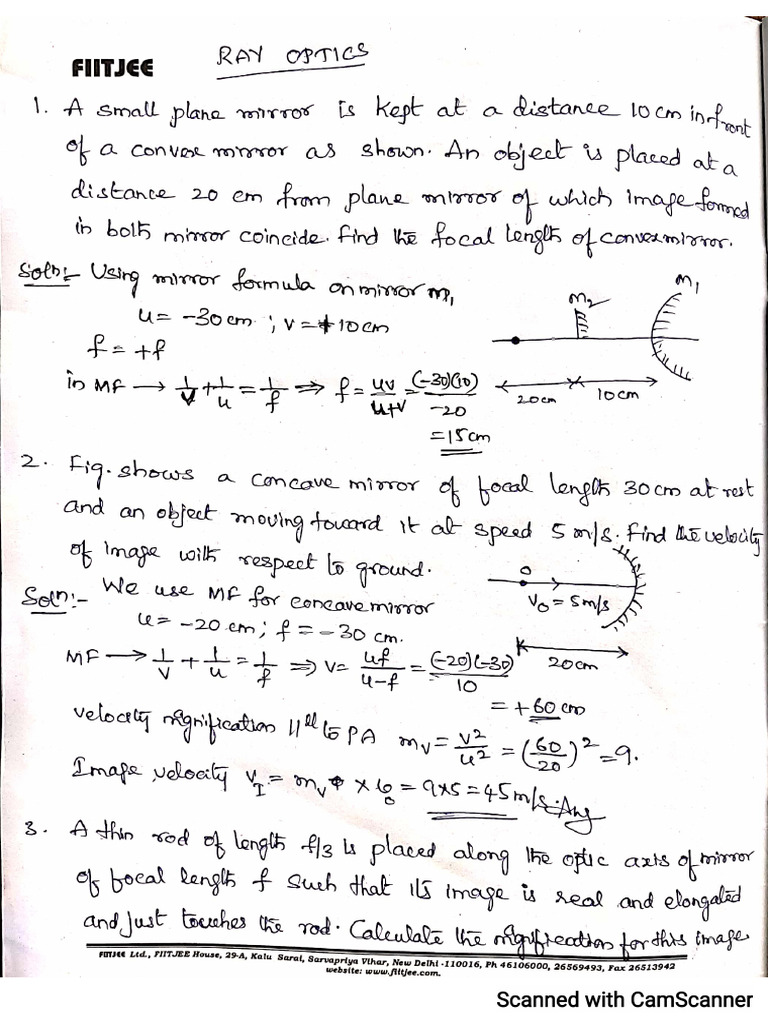 FIITJEE RAY OPTICS
1. A small plane mirror is kept at a distance 10cm infront
of a convex mirror as shown. An object is placed at a
distance 20 cm from plane mirror of which image formed
in both mirror coincide. Find the focal length of convex mirror.
Soln:- Using mirror formula on mirror M₁
u = -30cm ; v = +10cm
f = +f
in MF → 1/v + 1/u = 1/f ⇒ f = uv/u+v = (-30)(10)/-20
= 15cm
M₂ M₁
20cm 10cm
2. Fig. shows a concave mirror of focal length 30cm at rest
and an object moving toward it at speed 5 m/s. Find the velocity
of image with respect to ground.
Soln:- We use MF for concave mirror
u = -20 cm; f = -30 cm.
MF → 1/v + 1/u = 1/f ⇒ v = uf/u-f = (-20)(-30)/10
= +60cm
O
V₀ = 5m/s
20cm
velocity magnification ||ll to PA mv = v²/u² = (60/20)² = 9.
Image velocity VI = mv × = 9×5 = 45m/s. Ans
3. A thin rod of length f/3 is placed along the optic axis of mirror
of focal length f such that its image is real and elongated
and just touches the rod. Calculate the mgnification for this image
FIITJEE Ltd., FIITJEE House, 29-A, Kalu Sarai, Sarvapriya Vihar, New Delhi -110016, Ph 46106000, 26569493, Fax 26513942
website: www.fiitjee.com.
Scanned with CamScanner